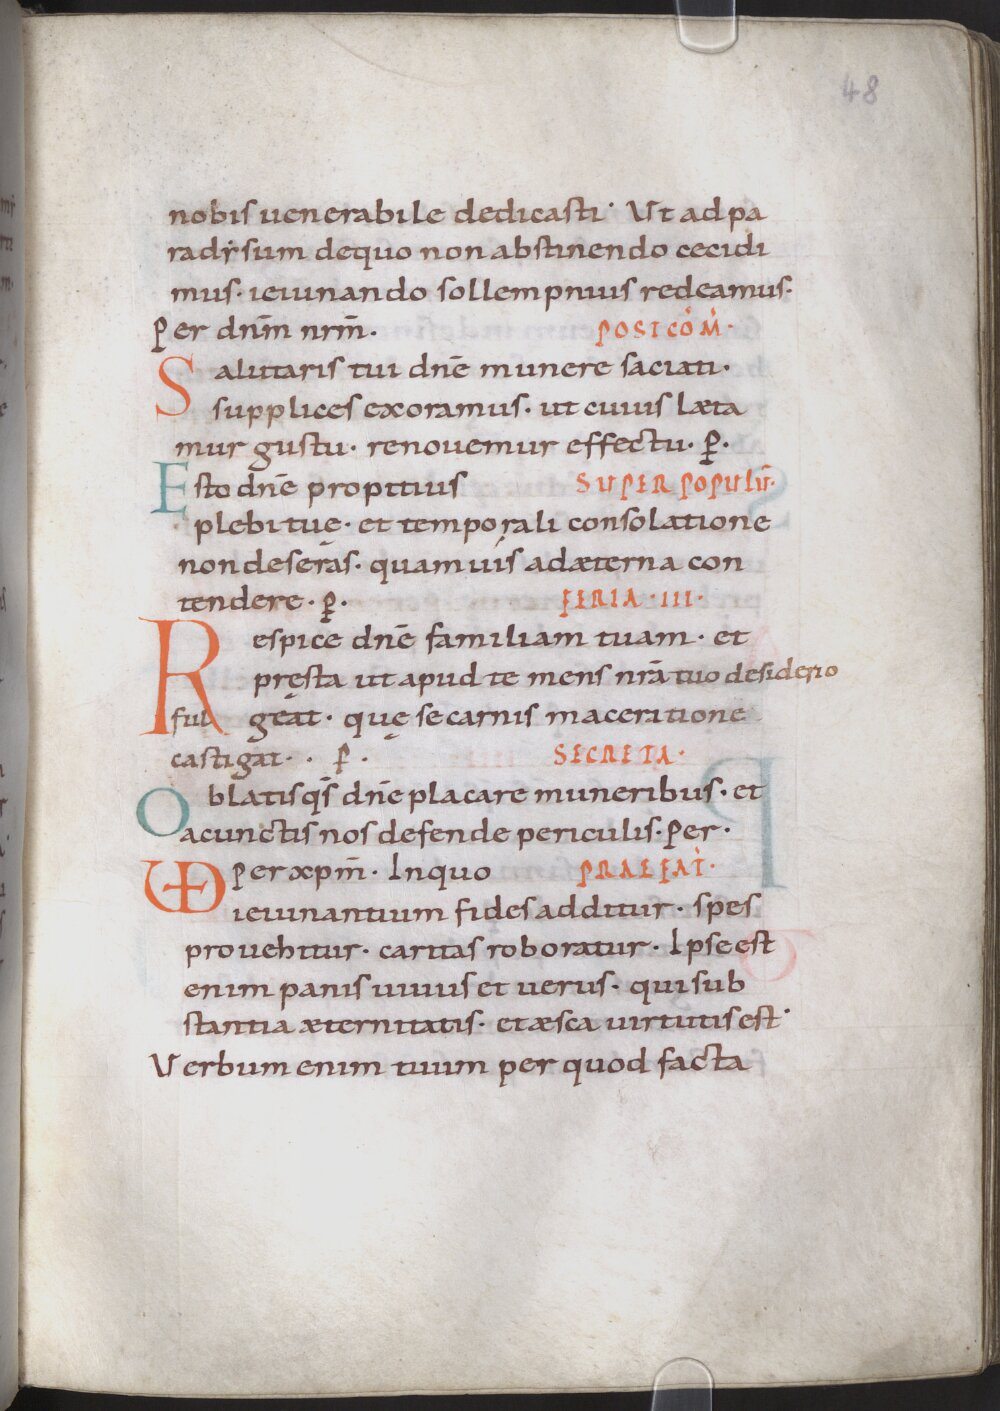 48
nobis uenerabile dedicasti· Vt ad pa
radẏsum dequo non abstinendo cecidi
mus· ieiunando sollempnius redeamus·
Per dnm̄ nrm̄· POSTCOM̄·
Salutaris tui dnē munere saciati·
supplices exoramus· ut cuius læta
mur gustu· renouemur effectu· P̄·
Esto dnē propitius SUPER POPULŪ·
plebi tuę· et temporali consolatione
non deseras· quam uis ad æterna con
tendere· P̄· FERIA·III·
Respice dnē familiam tuam· et
pręsta ut apud te mens nrā tuo desiderio
fulgeat· quę se carnis maceratione
castigat· · P̄· SECRETA·
Oblatis qs̄ dnē placare muneribus· et
a cunctis nos defende periculis· Per·
VD per xpm̄· In quo PRAEFAT·
ieiunantium fides additur· spes
prouehitur· caritas roboratur· Ipse est
enim panis uiuus et uerus· qui sub
stantia æternitatis· et æsca uirtutis est·
Verbum enim tuum per quod facta